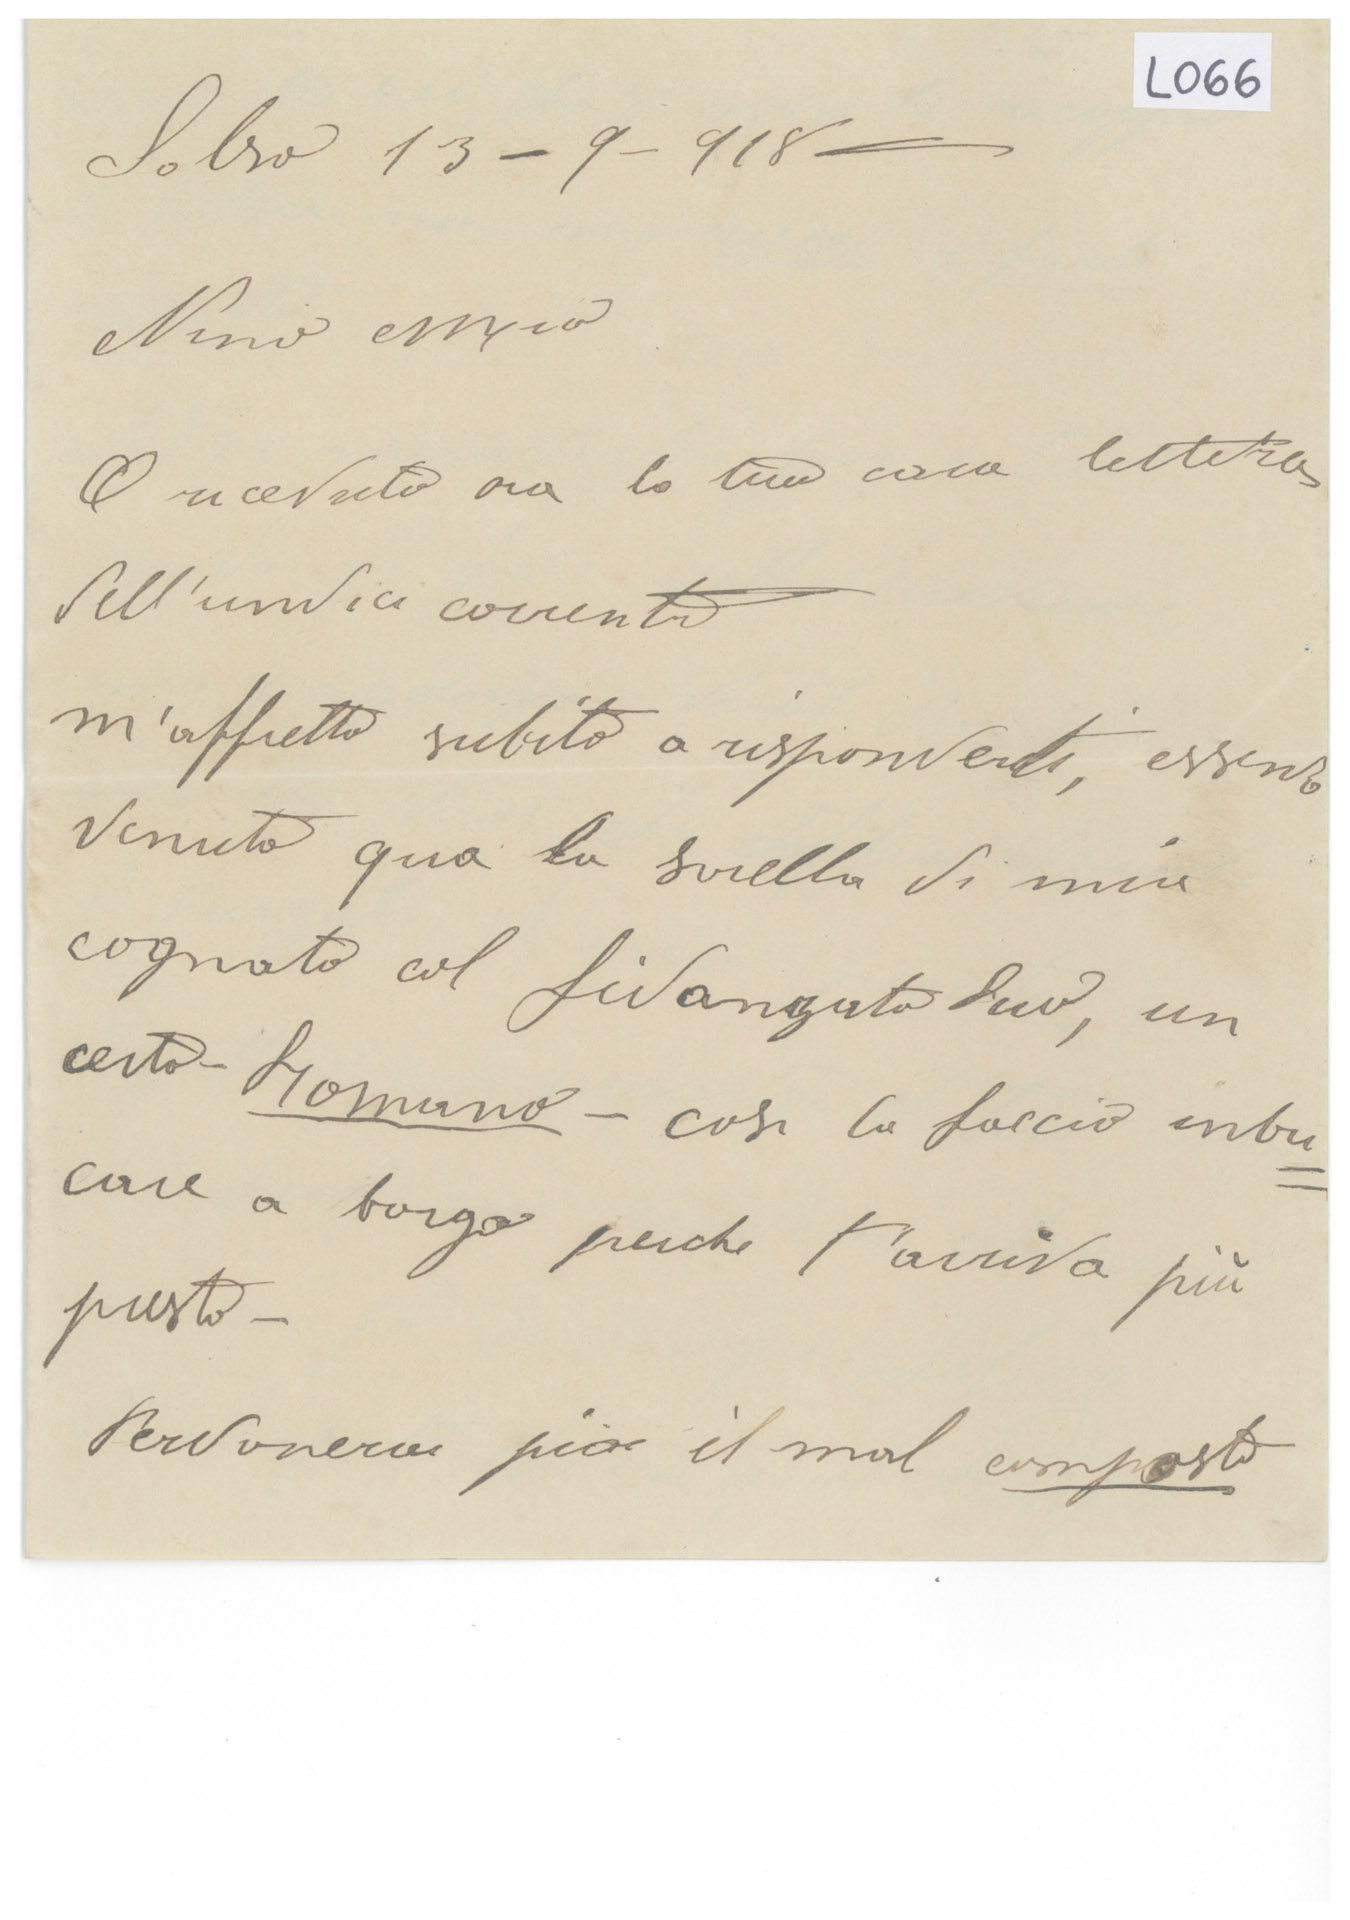 L066
Solro 13 - 9 - 918
Nino Mio
O ricevuto ora la tua cara lettera
dell'undici corrente
m'affretto subito a risponderti, essendo
venuto qua la sorella di mia
cognato col fidanzato suo, un
certo - Romano - cosi la faccio inbu=
care a borgo perche t'arriva più
presto -
Perdonerai poi il mal composto